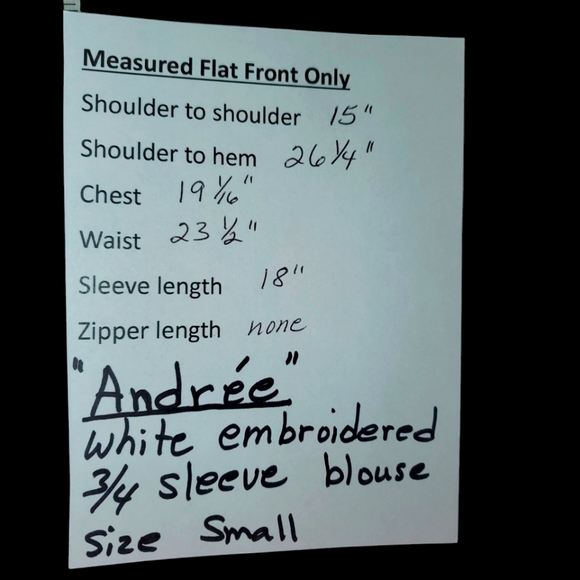 Measured Flat Front Only
Shoulder to shoulder 15"
Shoulder to hem 26 1/4"
Chest 19 1/16"
Waist 23 1/2"
Sleeve length 18"
Zipper length none
"Andrée"
white embroidered
3/4 sleeve blouse
size Small